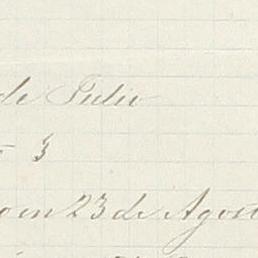 de Julio
3
en 23 de Agost